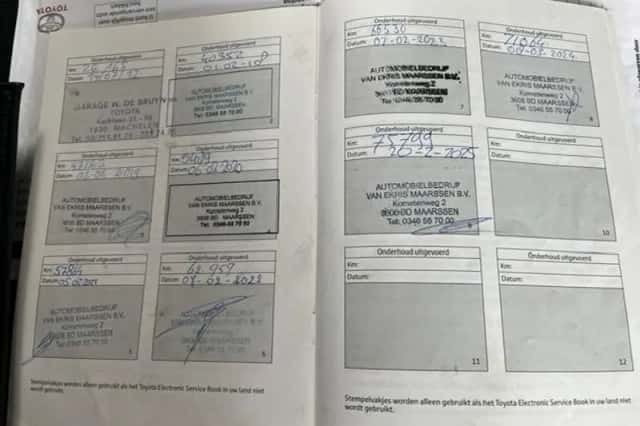 TOYOTA
Onderhoud uitgevoerd
Km:
Datum:
GARAGE W. DE BRUYN
TOYOTA
1830 MACHELEN
Onderhoud uitgevoerd
Km: 40352
Datum:
AUTOMOBIELBEDRIJF
VAN EKRIS MAARSSEN B.V.
Kometenweg 2
3606 BD MAARSSEN
Tel: 0346 55 70 00
Onderhoud uitgevoerd
Km:
Datum:
AUTOMOBIELBEDRIJF
VAN EKRIS MAARSSEN B.V.
Kometenweg 2
3606 BD MAARSSEN
Tel: 0346 55 70 00
Onderhoud uitgevoerd
Km:
Datum:
AUTOMOBIELBEDRIJF
VAN EKRIS MAARSSEN B.V.
Kometenweg 2
3606 BD MAARSSEN
Tel: 0346 55 70 00
Onderhoud uitgevoerd
Km:
Datum: 05-02-2021
AUTOMOBIELBEDRIJF
VAN EKRIS MAARSSEN B.V.
Kometenweg 2
3606 BD MAARSSEN
Tel: 0346 55 70 00
5
Onderhoud uitgevoerd
Km: 62.959
Datum: 07-02-2022
AUTOMOBIELBEDRIJF
VAN EKRIS MAARSSEN B.V.
Kometenweg 2
3606 BD MAARSSEN
Tel: 0346 55 70 00
6
Stempelvakjes worden alleen gebruikt als het Toyota Electronic Service Book in uw land niet
wordt gebruikt.
Onderhoud uitgevoerd
Km: 66530
Datum: 02-02-2023
AUTOMOBIELBEDRIJF
VAN EKRIS MAARSSEN B.V.
Kometenweg 2
3606 BD MAARSSEN
Tel: 0346 55 70 00
7
Onderhoud uitgevoerd
Km:
Datum: 07-02-2024
AUTOMOBIELBEDRIJF
VAN EKRIS MAARSSEN B.V.
Kometenweg 2
3606 BD MAARSSEN
Tel: 0346 55 70 00
8
Onderhoud uitgevoerd
Km: 75799
Datum: 20-2-2025
AUTOMOBIELBEDRIJF
VAN EKRIS MAARSSEN B.V.
Kometenweg 2
3606 BD MAARSSEN
Tel: 0346 55 70 00
Onderhoud uitgevoerd
Km:
Datum:
10
Onderhoud uitgevoerd
Km:
Datum:
11
Onderhoud uitgevoerd
Km:
Datum:
12
Stempelvakjes worden alleen gebruikt als het Toyota Electronic Service Book in uw land niet
wordt gebruikt.